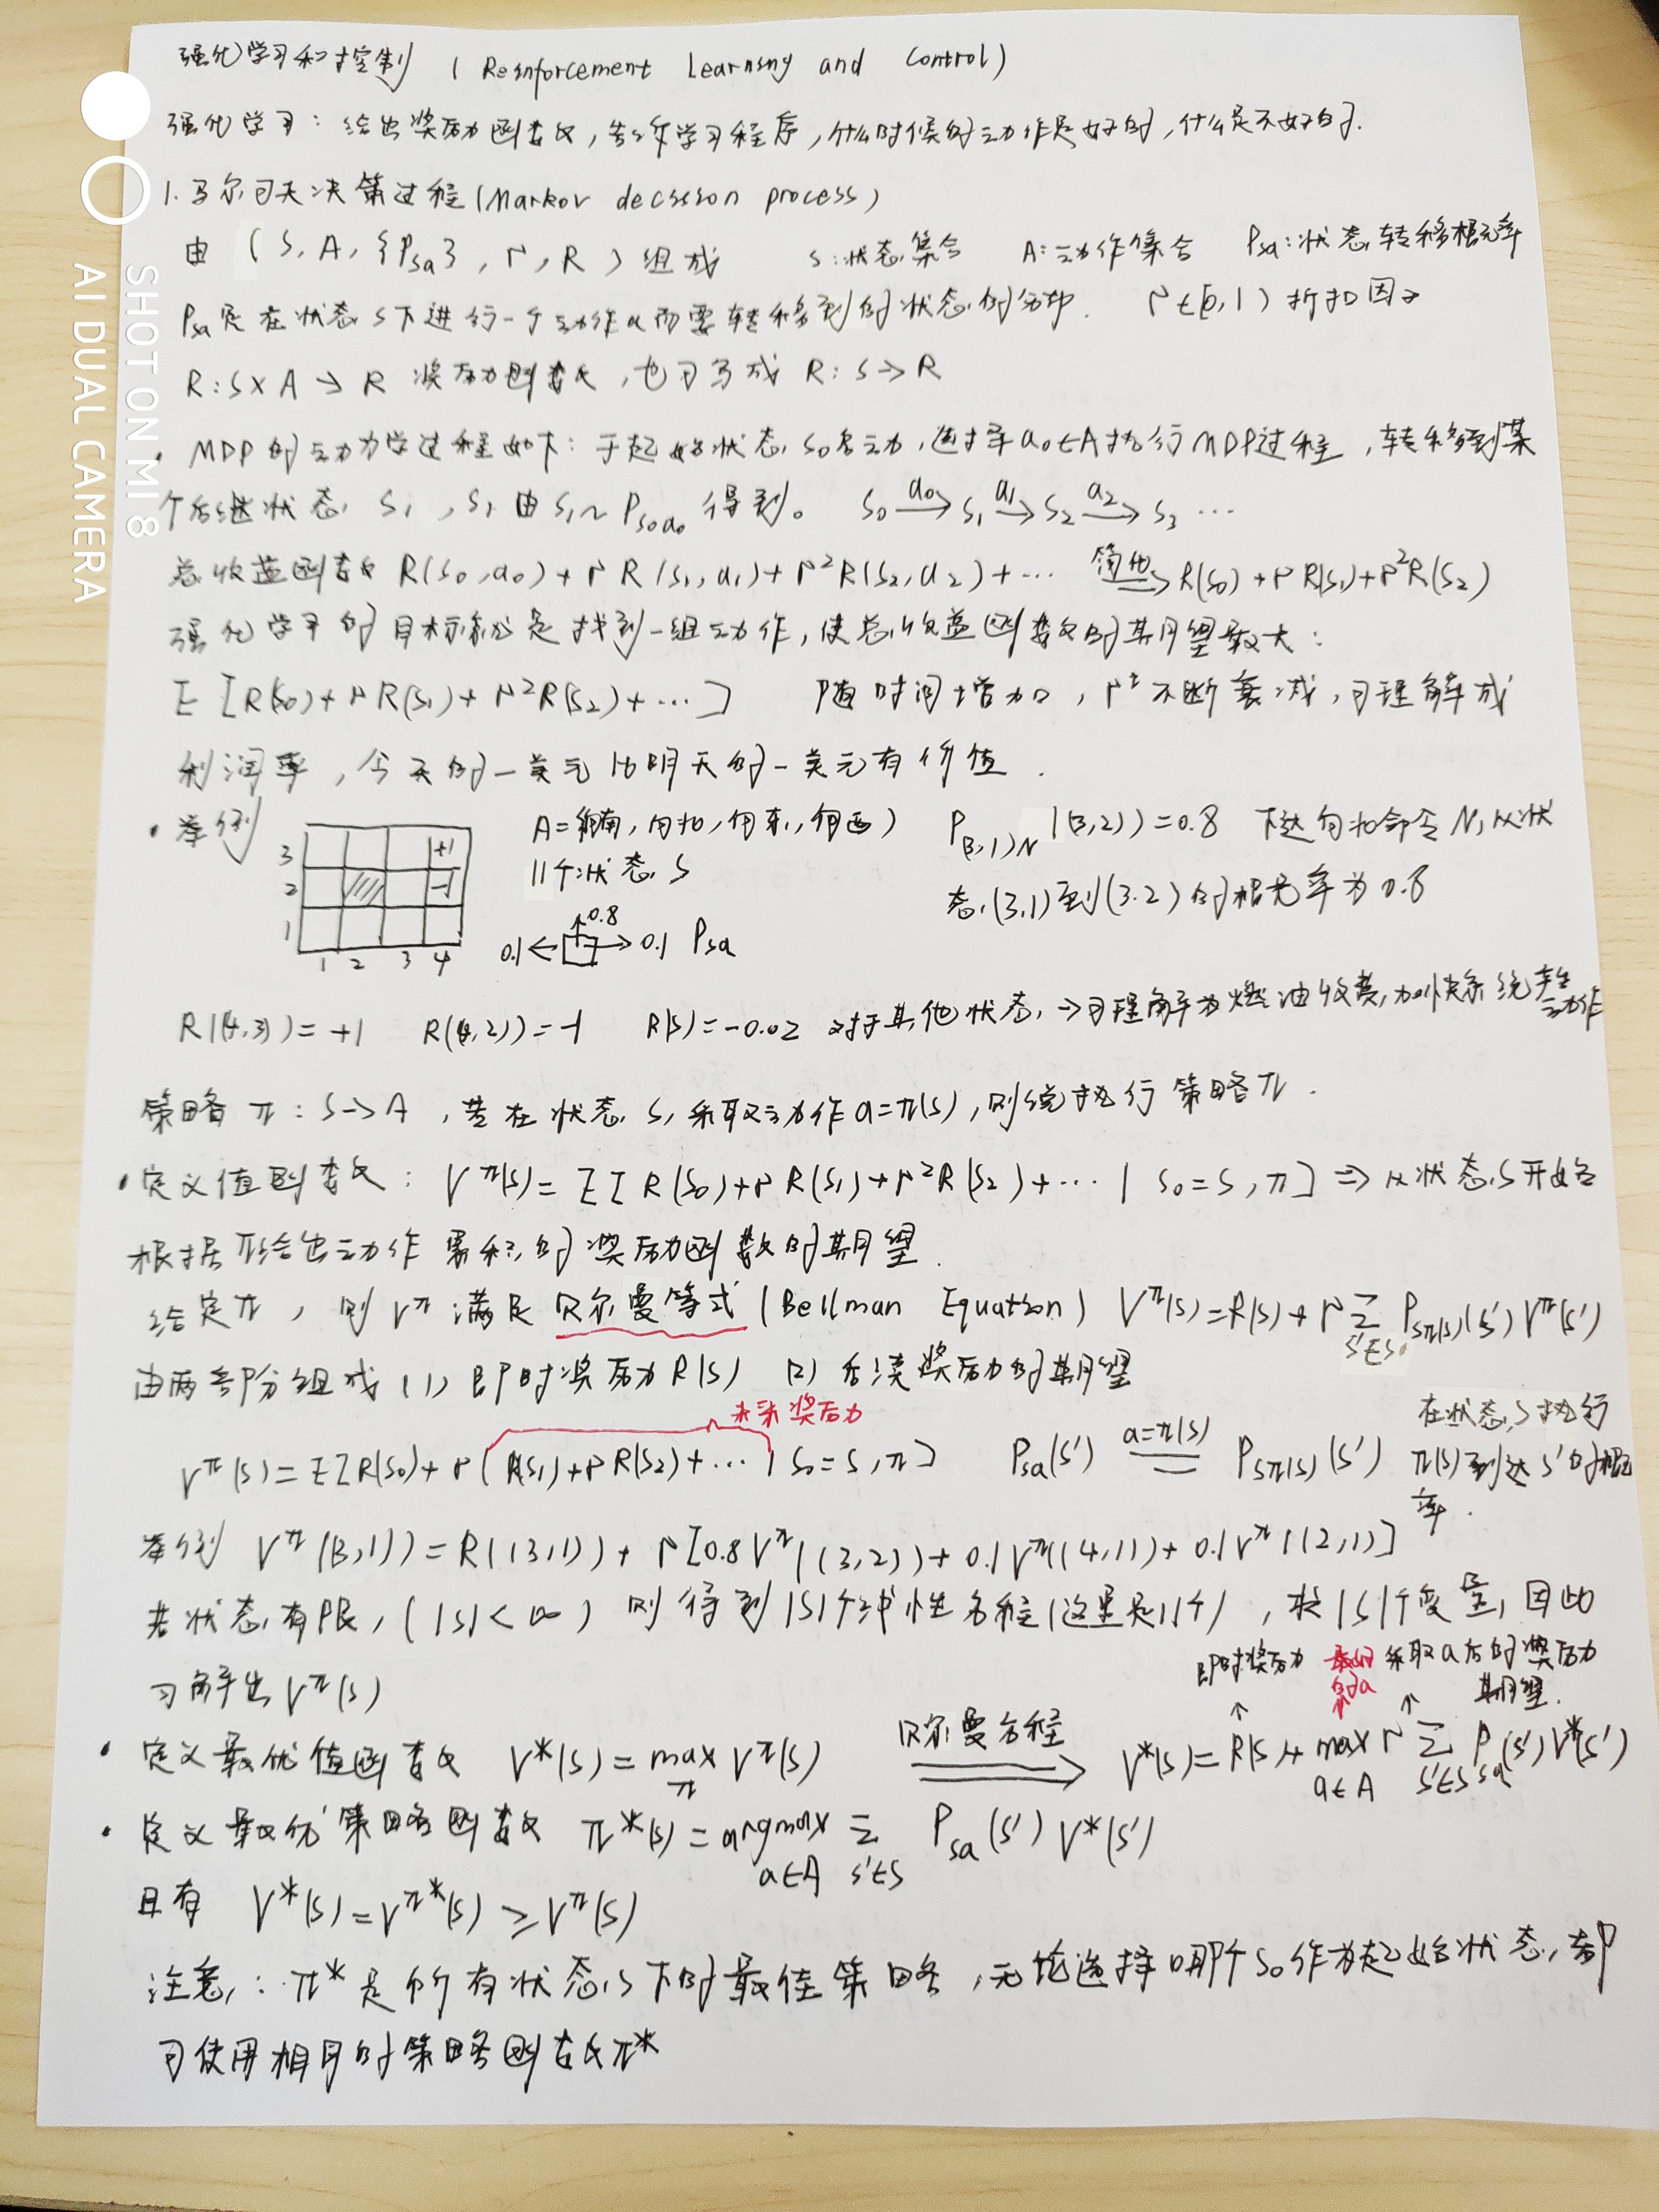 强化学习和控制 (Reinforcement Learning and Control)
强化学习：给出奖励函数，告诉学习程序，什么时候的动作是好的，什么是不好的.
1.马尔可夫决策过程(Markov decision process)
由 (S, A, {Psa}, γ, R) 组成 S:状态集合 A:动作集合 Psa:状态转移概率
Psa是在状态S下进行一个动作a而要转移到的状态的分布. γ∈[0,1) 折扣因子
R:S×A→R 奖励函数，也可写成 R:S→R
· MDP的动力学过程如下：于起始状态S0启动，选择a0∈A执行MDP过程，转移到某
个后继状态S1，S1由S1~Ps0a0得到。 S0 —a0→ S1 —a1→ S2 —a2→ S3 …
总收益函数 R(S0,a0)+γR(S1,a1)+γ²R(S2,a2)+… 简化→ R(S0)+γR(S1)+γ²R(S2)
强化学习的目标就是找到一组动作，使总收益函数的期望最大：
E[R(S0)+γR(S1)+γ²R(S2)+…] 随时间增加，γᵗ不断衰减，可理解成
利润率，今天的一美元比明天的一美元有价值.
· 举例 A={向南,向北,向东,向西} P(3,1)N((3,2))=0.8 下达向北命令N,从状
3 +1 11个状态S 态(3,1)到(3.2)的概率为0.8
2 -1
1 0.1← ↑0.8 →0.1 Psa
1 2 3 4
R((4,3))=+1 R((4,2))=-1 R(S)=-0.02 对于其他状态,→可理解为燃油收费,加快系统产生动作
策略π:S→A，若在状态S,采取动作a=π(s),则绕执行策略π.
· 定义值函数：Vπ(s)=E[R(S0)+γR(S1)+γ²R(S2)+…| S0=S,π] ⇒从状态S开始
根据π给出动作累积的奖励函数的期望.
给定π，则Vπ满足贝尔曼等式(Bellman Equation) Vπ(s)=R(s)+γ∑s'∈S Psπ(s)(s')Vπ(s')
由两部分组成 (1) 即时奖励R(S) (2) 后续奖励的期望
未来奖励
Vπ(s)=E[R(S0)+γ(R(S1)+γR(S2)+…| S0=S,π] Psa(s') a=π(s) = Psπ(s)(s') 在状态S执行π(s)到达s'的概率.
举例 Vπ((3,1))=R((3,1))+γ[0.8Vπ((3,2))+0.1Vπ((4,1))+0.1Vπ((2,1)]
若状态有限,(|S|<∞) 则得到|S|个线性方程(这里是11个)，求|S|个变量,因此
可解出Vπ(s)
即时奖励 最好的a 采取a后的奖励期望.
· 定义最优值函数 V*(s)=maxπ Vπ(s) 贝尔曼方程⇒ V*(s)=R(s)+max a∈A γ∑s'∈S Psa(s')V*(s')
· 定义最优策略函数 π*(s)=argmax a∈A ∑s'∈S Psa(s')V*(s')
且有 V*(s)=Vπ*(s)≥Vπ(s)
注意：π*是所有状态S下的最佳策略，无论选择哪个S0作为起始状态,都
可使用相同的策略函数π*
SHOT ON MI 8
AI DUAL CAMERA